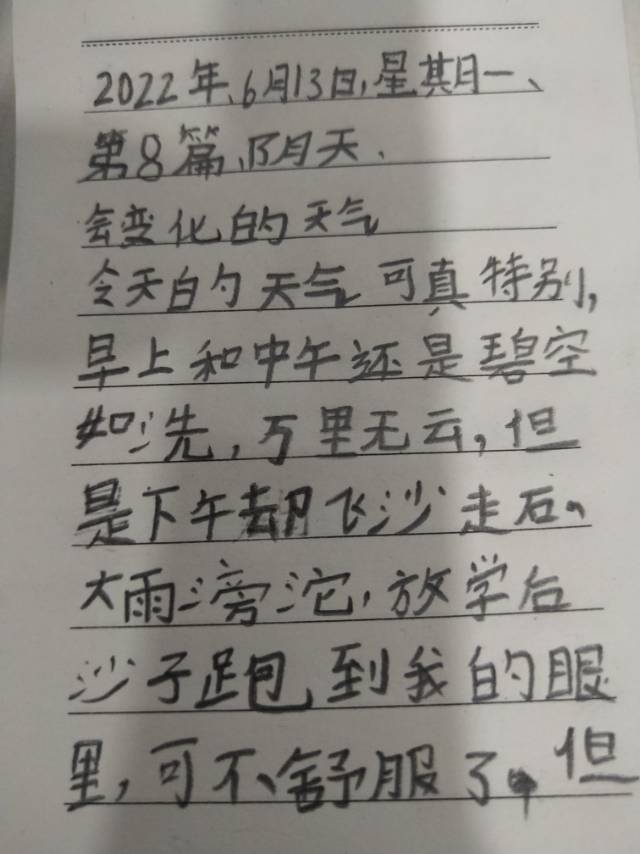 2022年、6月13日,星期一、
第8篇、阴天、
会变化的天气
今天的天气可真特别,
早上和中午还是碧空
如洗,万里无云,但
是下午却飞沙走石、
大雨滂沱,放学后
沙子跑到我的眼
里,可不舒服了,但